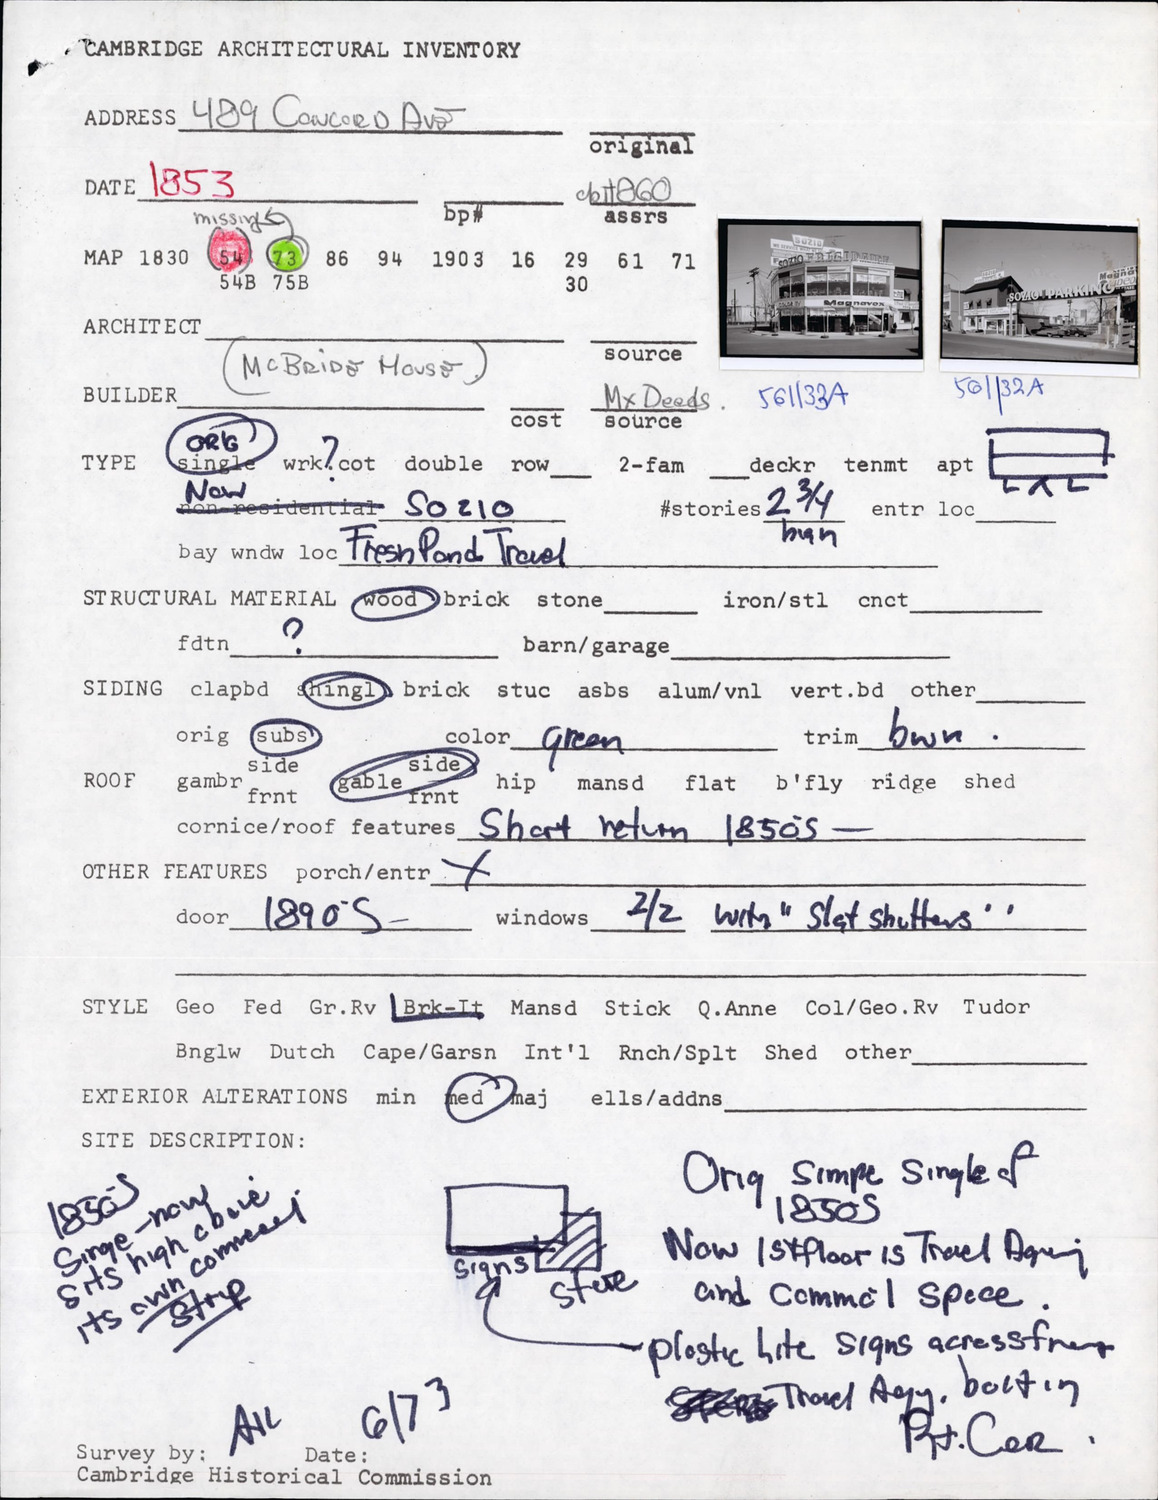 CAMBRIDGE ARCHITECTURAL INVENTORY
ADDRESS 489 CONCORD AVE
original
DATE 1853 bp# assrs
missing
MAP 1830 54 73 86 94 1903 16 29 61 71
54B 75B 30
SOZIO
SOZIO FRIGIDAIRE
Magnavox
SOZIO PARKING
ARCHITECT source
(McBRIDE HOUSE)
BUILDER cost Mx Deeds. source
561/33A 561/32A
ORIG
TYPE single wrk?cot double row 2-fam deckr tenmt apt
Now
non-residential SOZIO #stories 2 3/4 entr loc
bay wndw loc Fresh Pond Travel
STRUCTURAL MATERIAL wood brick stone iron/stl cnct
fdtn ? barn/garage
SIDING clapbd shingl brick stuc asbs alum/vnl vert.bd other
orig subs color green trim bwn.
ROOF gambr side frnt gable side frnt hip mansd flat b'fly ridge shed
cornice/roof features Short return 1850'S —
OTHER FEATURES porch/entr X
door 1890'S — windows 2/2 with "Slat shutters"
STYLE Geo Fed Gr.Rv Brk-It Mansd Stick Q.Anne Col/Geo.Rv Tudor
Bnglw Dutch Cape/Garsn Int'l Rnch/Splt Shed other
EXTERIOR ALTERATIONS min med maj ells/addns
SITE DESCRIPTION:
1850'S
Singe-now
sits high above
its own commercial
strip
Signs
Store
Orig Simpe Single of
1850S
Now 1st floor is Travel Agency
and Commcl Space.
plastic lite signs across front
Travel Agy. bolt in
Pt. Cor.
Survey by: AK Date: 6/73
Cambridge Historical Commission